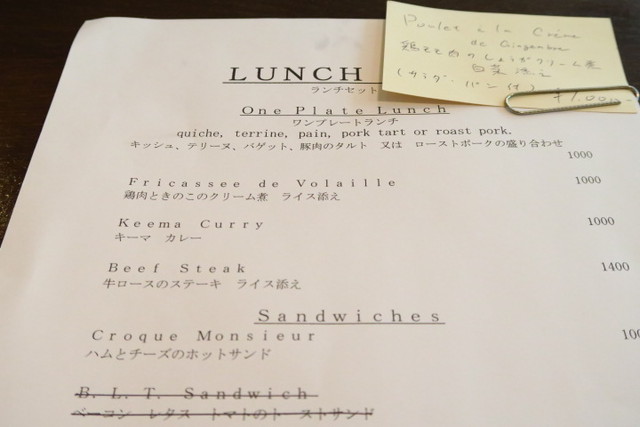 Poulet à la Crème
de Gingembre
鶏もも肉のしょうがクリーム煮
白菜添え
(サラダ・パン付)
¥1,000-
LUNCH
ランチセット
One Plate Lunch
ワンプレートランチ
quiche, terrine, pain, pork tart or roast pork.
キッシュ、テリーヌ、バゲット、豚肉のタルト 又は ローストポークの盛り合わせ
1000
Fricassee de Volaille 1000
鶏肉ときのこのクリーム煮 ライス添え
Keema Curry 1000
キーマ カレー
Beef Steak 1400
牛ロースのステーキ ライス添え
Sandwiches
Croque Monsieur
ハムとチーズのホットサンド
B. L. T. Sandwich
ベーコン レタス トマトのトーストサンド